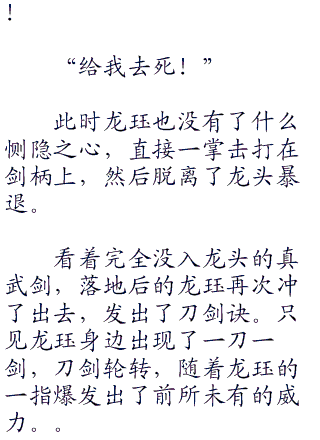 ！
“给我去死！”
此时龙珏也没有了什么
恻隐之心，直接一掌击打在
剑柄上，然后脱离了龙头暴
退。
看着完全没入龙头的真
武剑，落地后的龙珏再次冲
了出去，发出了刀剑诀。只
见龙珏身边出现了一刀一
剑，刀剑轮转，随着龙珏的
一指爆发出了前所未有的威
力。。